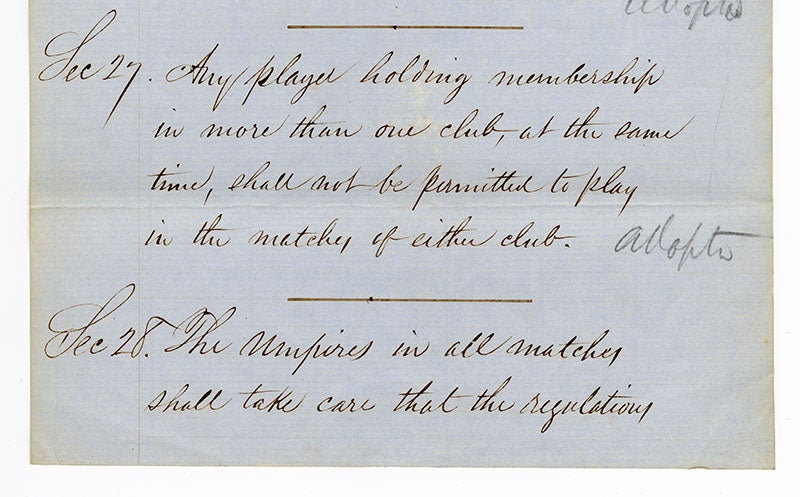 adopted
Sec 27. Any player holding membership
in more than one club, at the same
time, shall not be permitted to play
in the matches of either club.
adopted
Sec 28. The Umpires in all matches
shall take care that the regulations